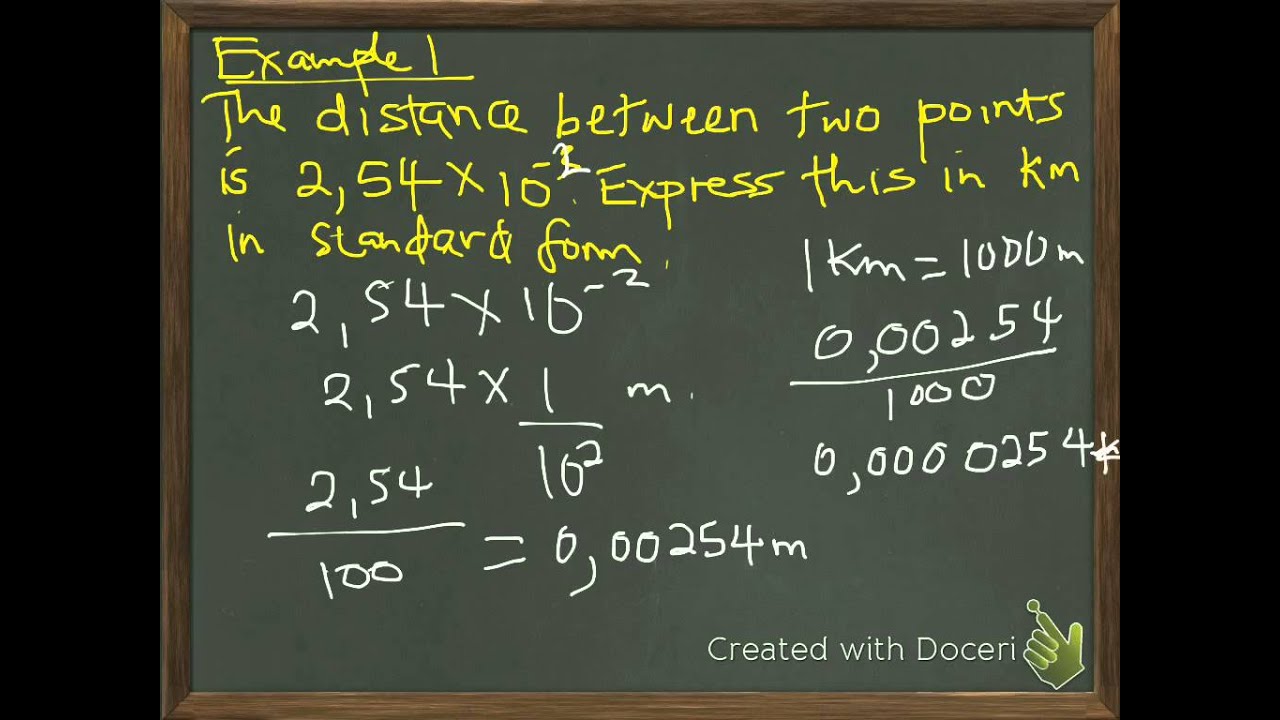 Example 1
The distance between two points
is 2,54 × 10⁻². Express this in km
in standard form.
2,54 × 10⁻²
2,54 × 1/10² m.
2,54/100 = 0,00254m
1 Km = 1000m
0,00254/1000
0,0000254k
Created with Doceri